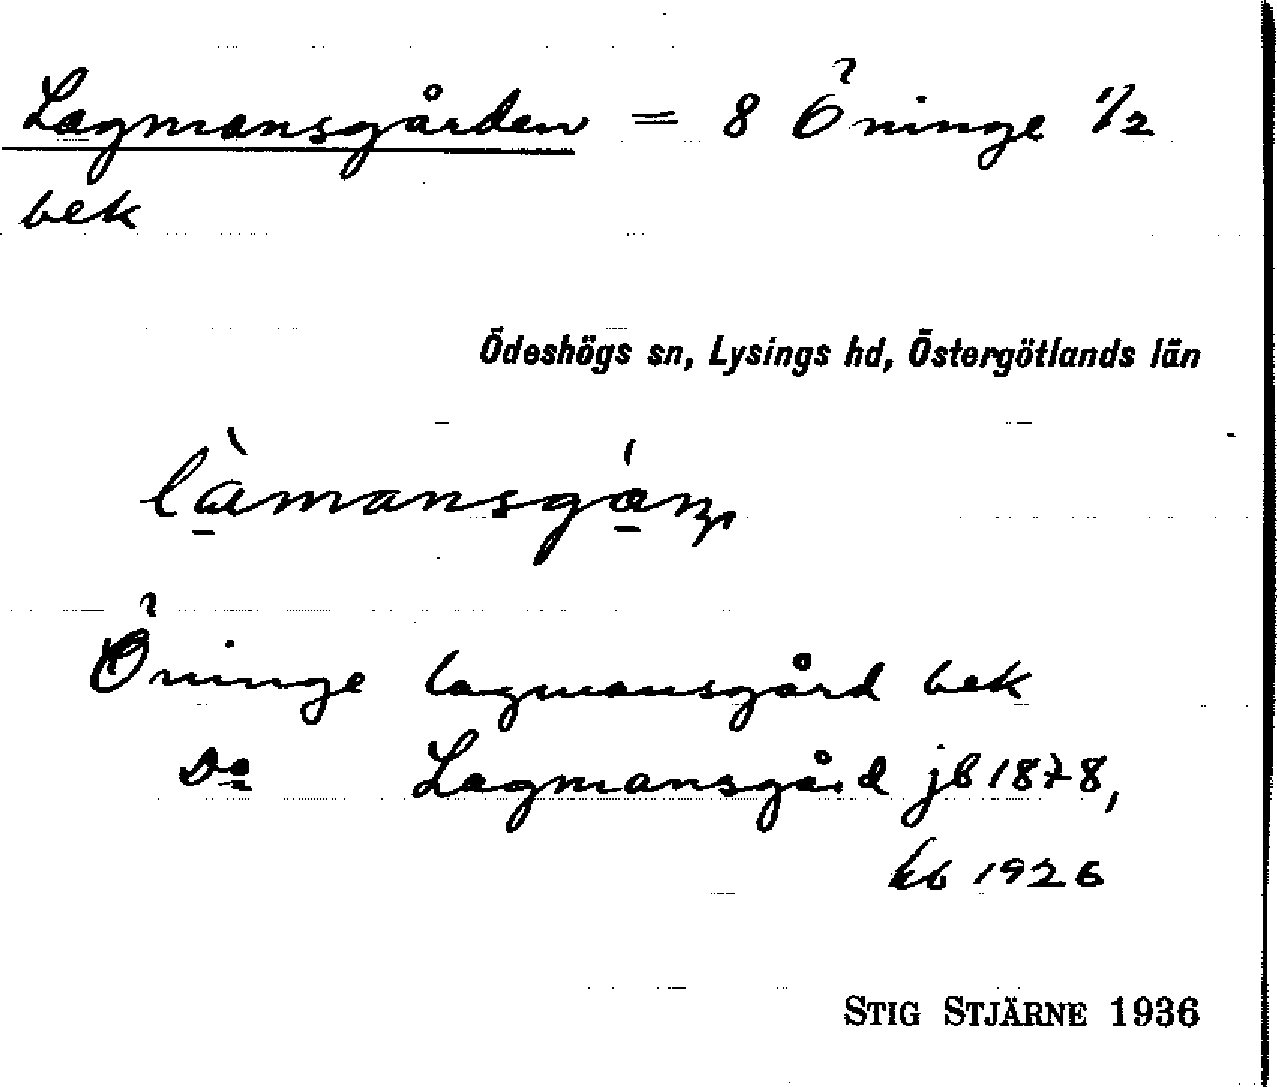 Lagmansgården = 8 Öninge 1/2
bek
Ödeshögs sn, Lysings hd, Östergötlands län
Öninge lagmansgård bek
Do Lagmansgård jb 1878,
kb 1926
STIG STJÄRNE 1936